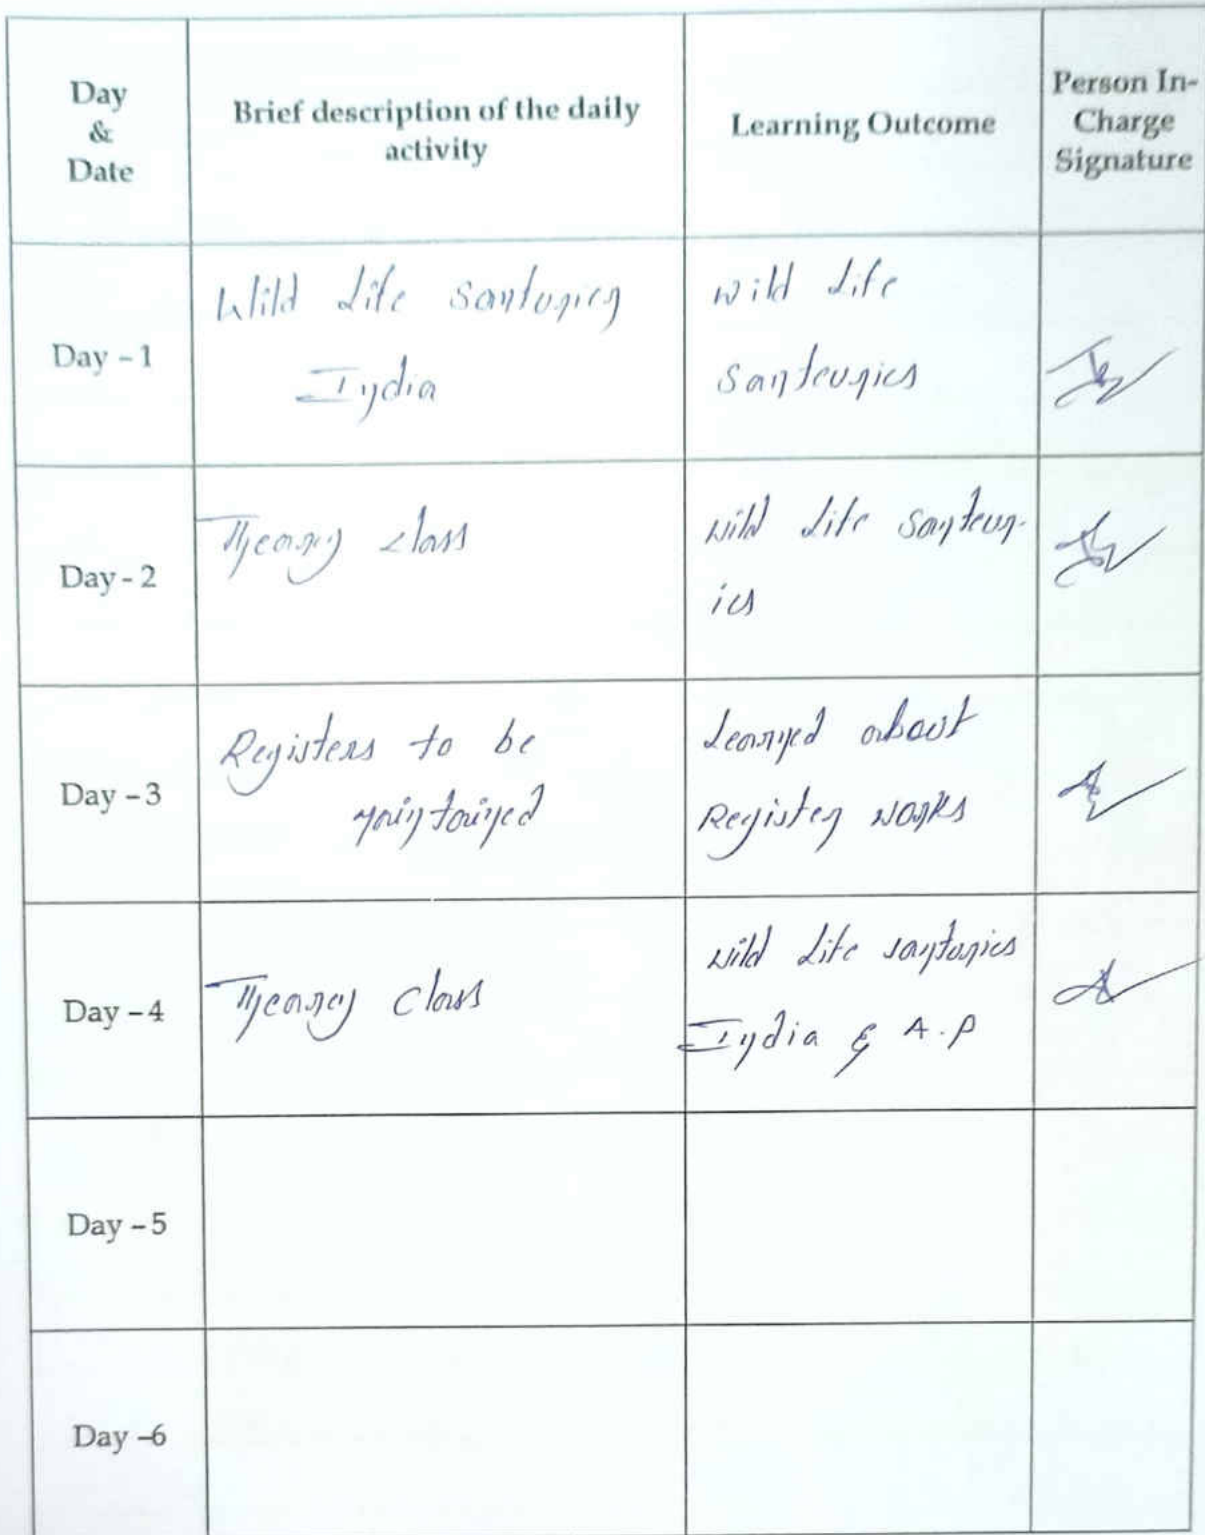 Day
&
Date
Brief description of the daily
activity
Learning Outcome
Person In-
Charge
Signature
Day - 1
Wild Life Santuries
India
Wild Life
Santeuries
Day - 2
Theory class
Wild Life Santeur-
ies
Day - 3
Registers to be
maintained
Learned about
Register works
Day - 4
Theory Class
Wild Life santuries
India & A.P
Day - 5
Day - 6